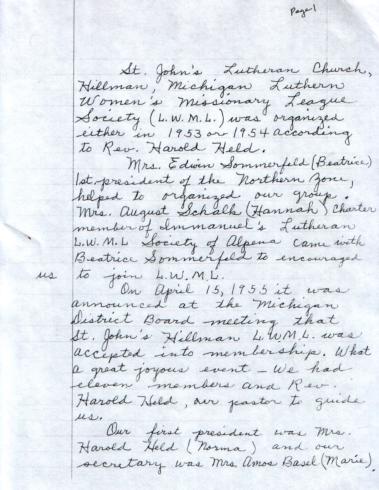 Page 1
St. John's Lutheran Church,
Hillman, Michigan Luthern
Women's Missionary League
Society (L.W.M.L.) was organized
either in 1953 or 1954 according
to Rev. Harold Held.
Mrs. Edwin Sommerfeld (Beatrice)
1st. president of the Northern Zone,
helped to organized our group.
Mrs. August Schalk (Hannah) Charter
member of Immanuel's Lutheran
L.W.M.L Society of Alpena came with
Beatrice Sommerfeld to encouraged
us to join L.W.M.L.
On April 15, 1955 it was
announced at the Michigan
District Board meeting that
St. John's Hillman L.W.M.L. was
accepted into membership. What
a great joyous event - We had
eleven members and Rev.
Harold Held, our pastor to guide
us.
Our first president was Mrs.
Harold Held (Norma) and our
secretary was Mrs Amos Basel (Marie).